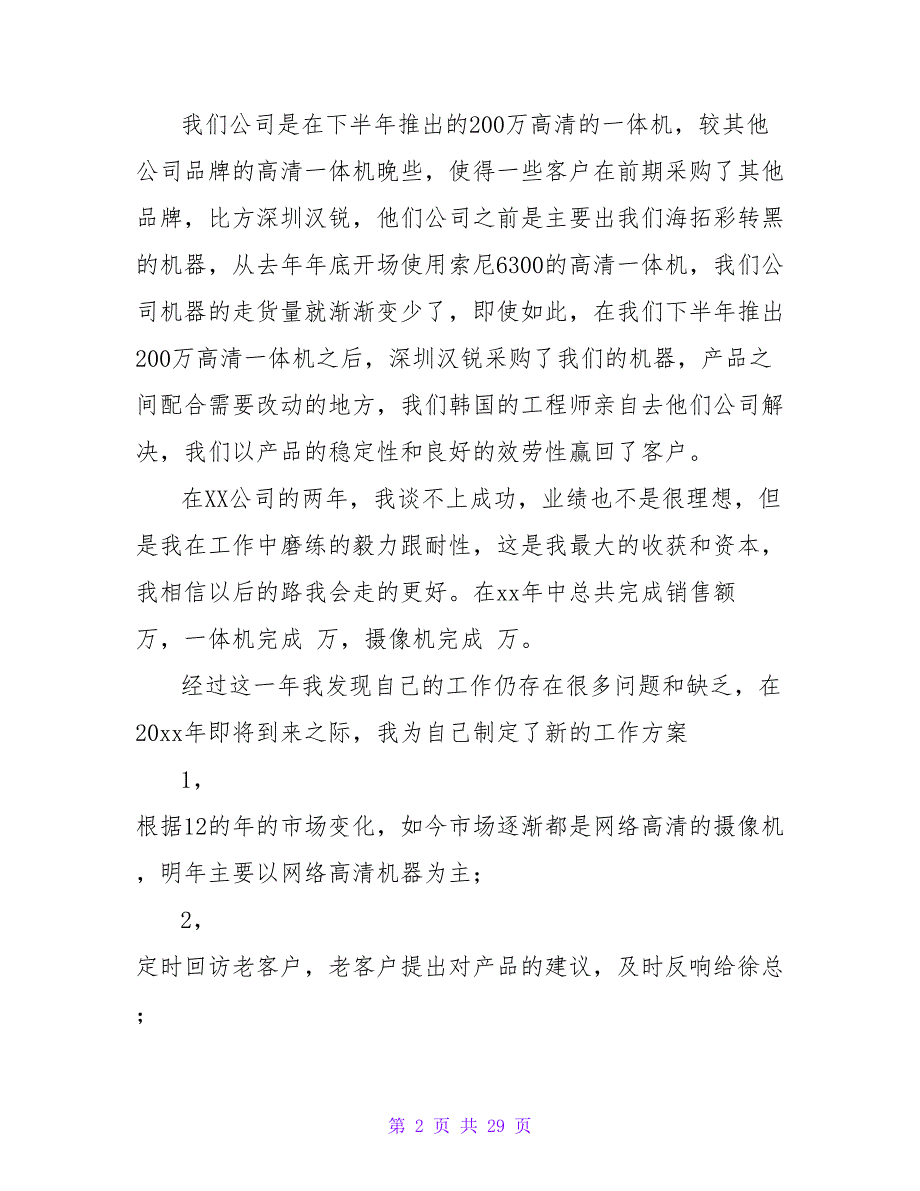 我们公司是在下半年推出的200万高清的一体机，较其他
公司品牌的高清一体机晚些，使得一些客户在前期采购了其他
品牌，比方深圳汉锐，他们公司之前是主要出我们海拓彩转黑
的机器，从去年年底开场使用索尼6300的高清一体机，我们公
司机器的走货量就渐渐变少了，即使如此，在我们下半年推出
200万高清一体机之后，深圳汉锐采购了我们的机器，产品之
间配合需要改动的地方，我们韩国的工程师亲自去他们公司解
决，我们以产品的稳定性和良好的效劳性赢回了客户。
在XX公司的两年，我谈不上成功，业绩也不是很理想，但
是我在工作中磨练的毅力跟耐性，这是我最大的收获和资本，
我相信以后的路我会走的更好。在xx年中总共完成销售额
万，一体机完成 万，摄像机完成 万。
经过这一年我发现自己的工作仍存在很多问题和缺乏，在
20xx年即将到来之际，我为自己制定了新的工作方案
1，
根据12的年的市场变化，如今市场逐渐都是网络高清的摄像机
，明年主要以网络高清机器为主；
2，
定时回访老客户，老客户提出对产品的建议，及时反响给徐总
；
第 2 页 共 29 页